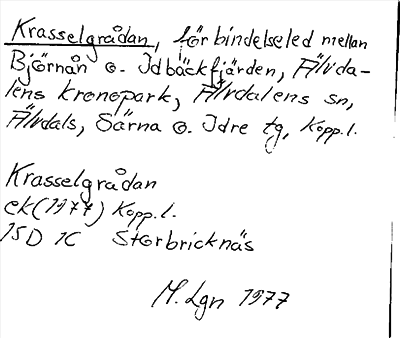 Krasselgrådan, förbindelseled mellan
Björnån o. Idbäckfjärden, Älvda-
lens kronopark, Älvdalens sn,
Älvdals, Särna o. Idre tg, Kopp.l.
Krasselgrådan
ek(1977) Kopp.l.
15D 1C Storbricknäs
M. Lgn 1977